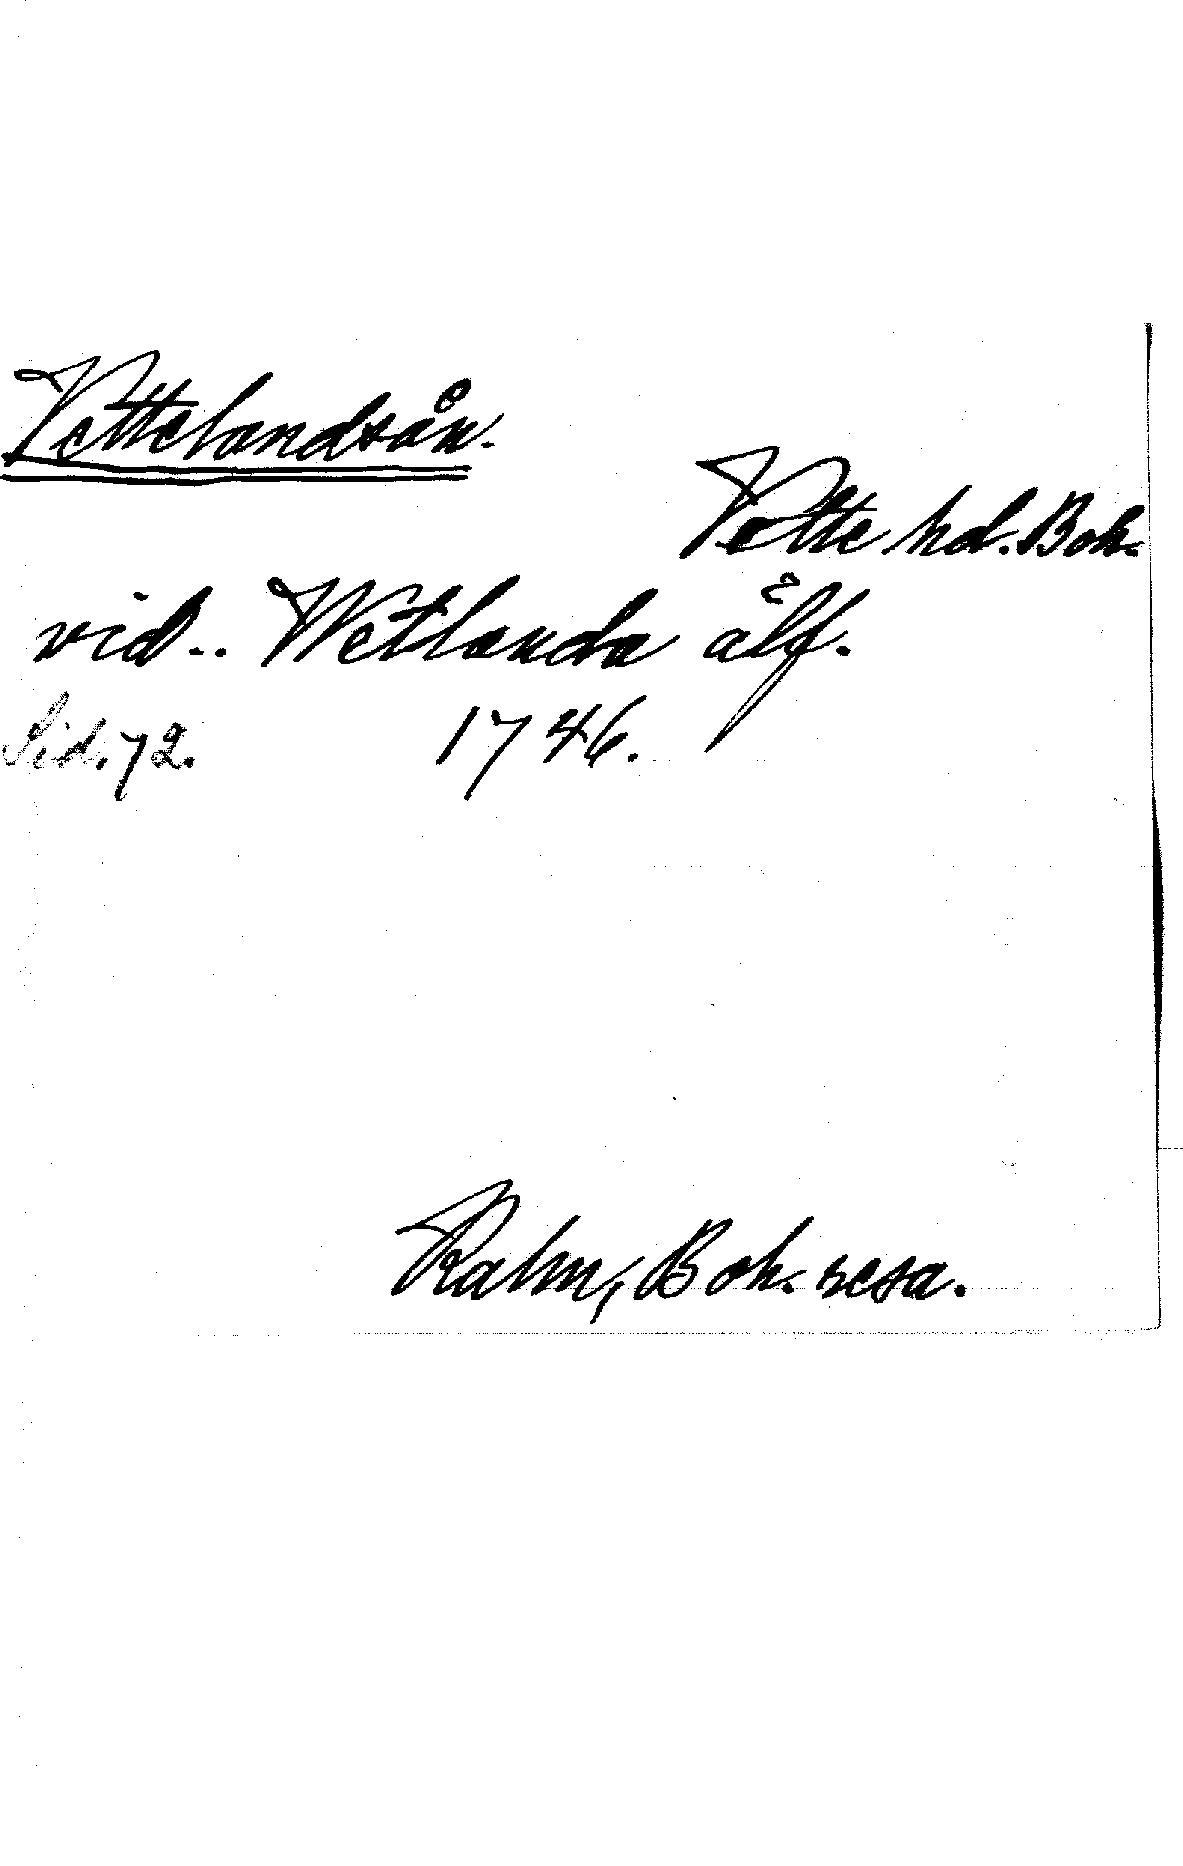 Vettelandsån.
Vette hd. Boh.
vid.. Wetlanda älf.
Sid. 72. 1746.
Kalm, Boh. resa.